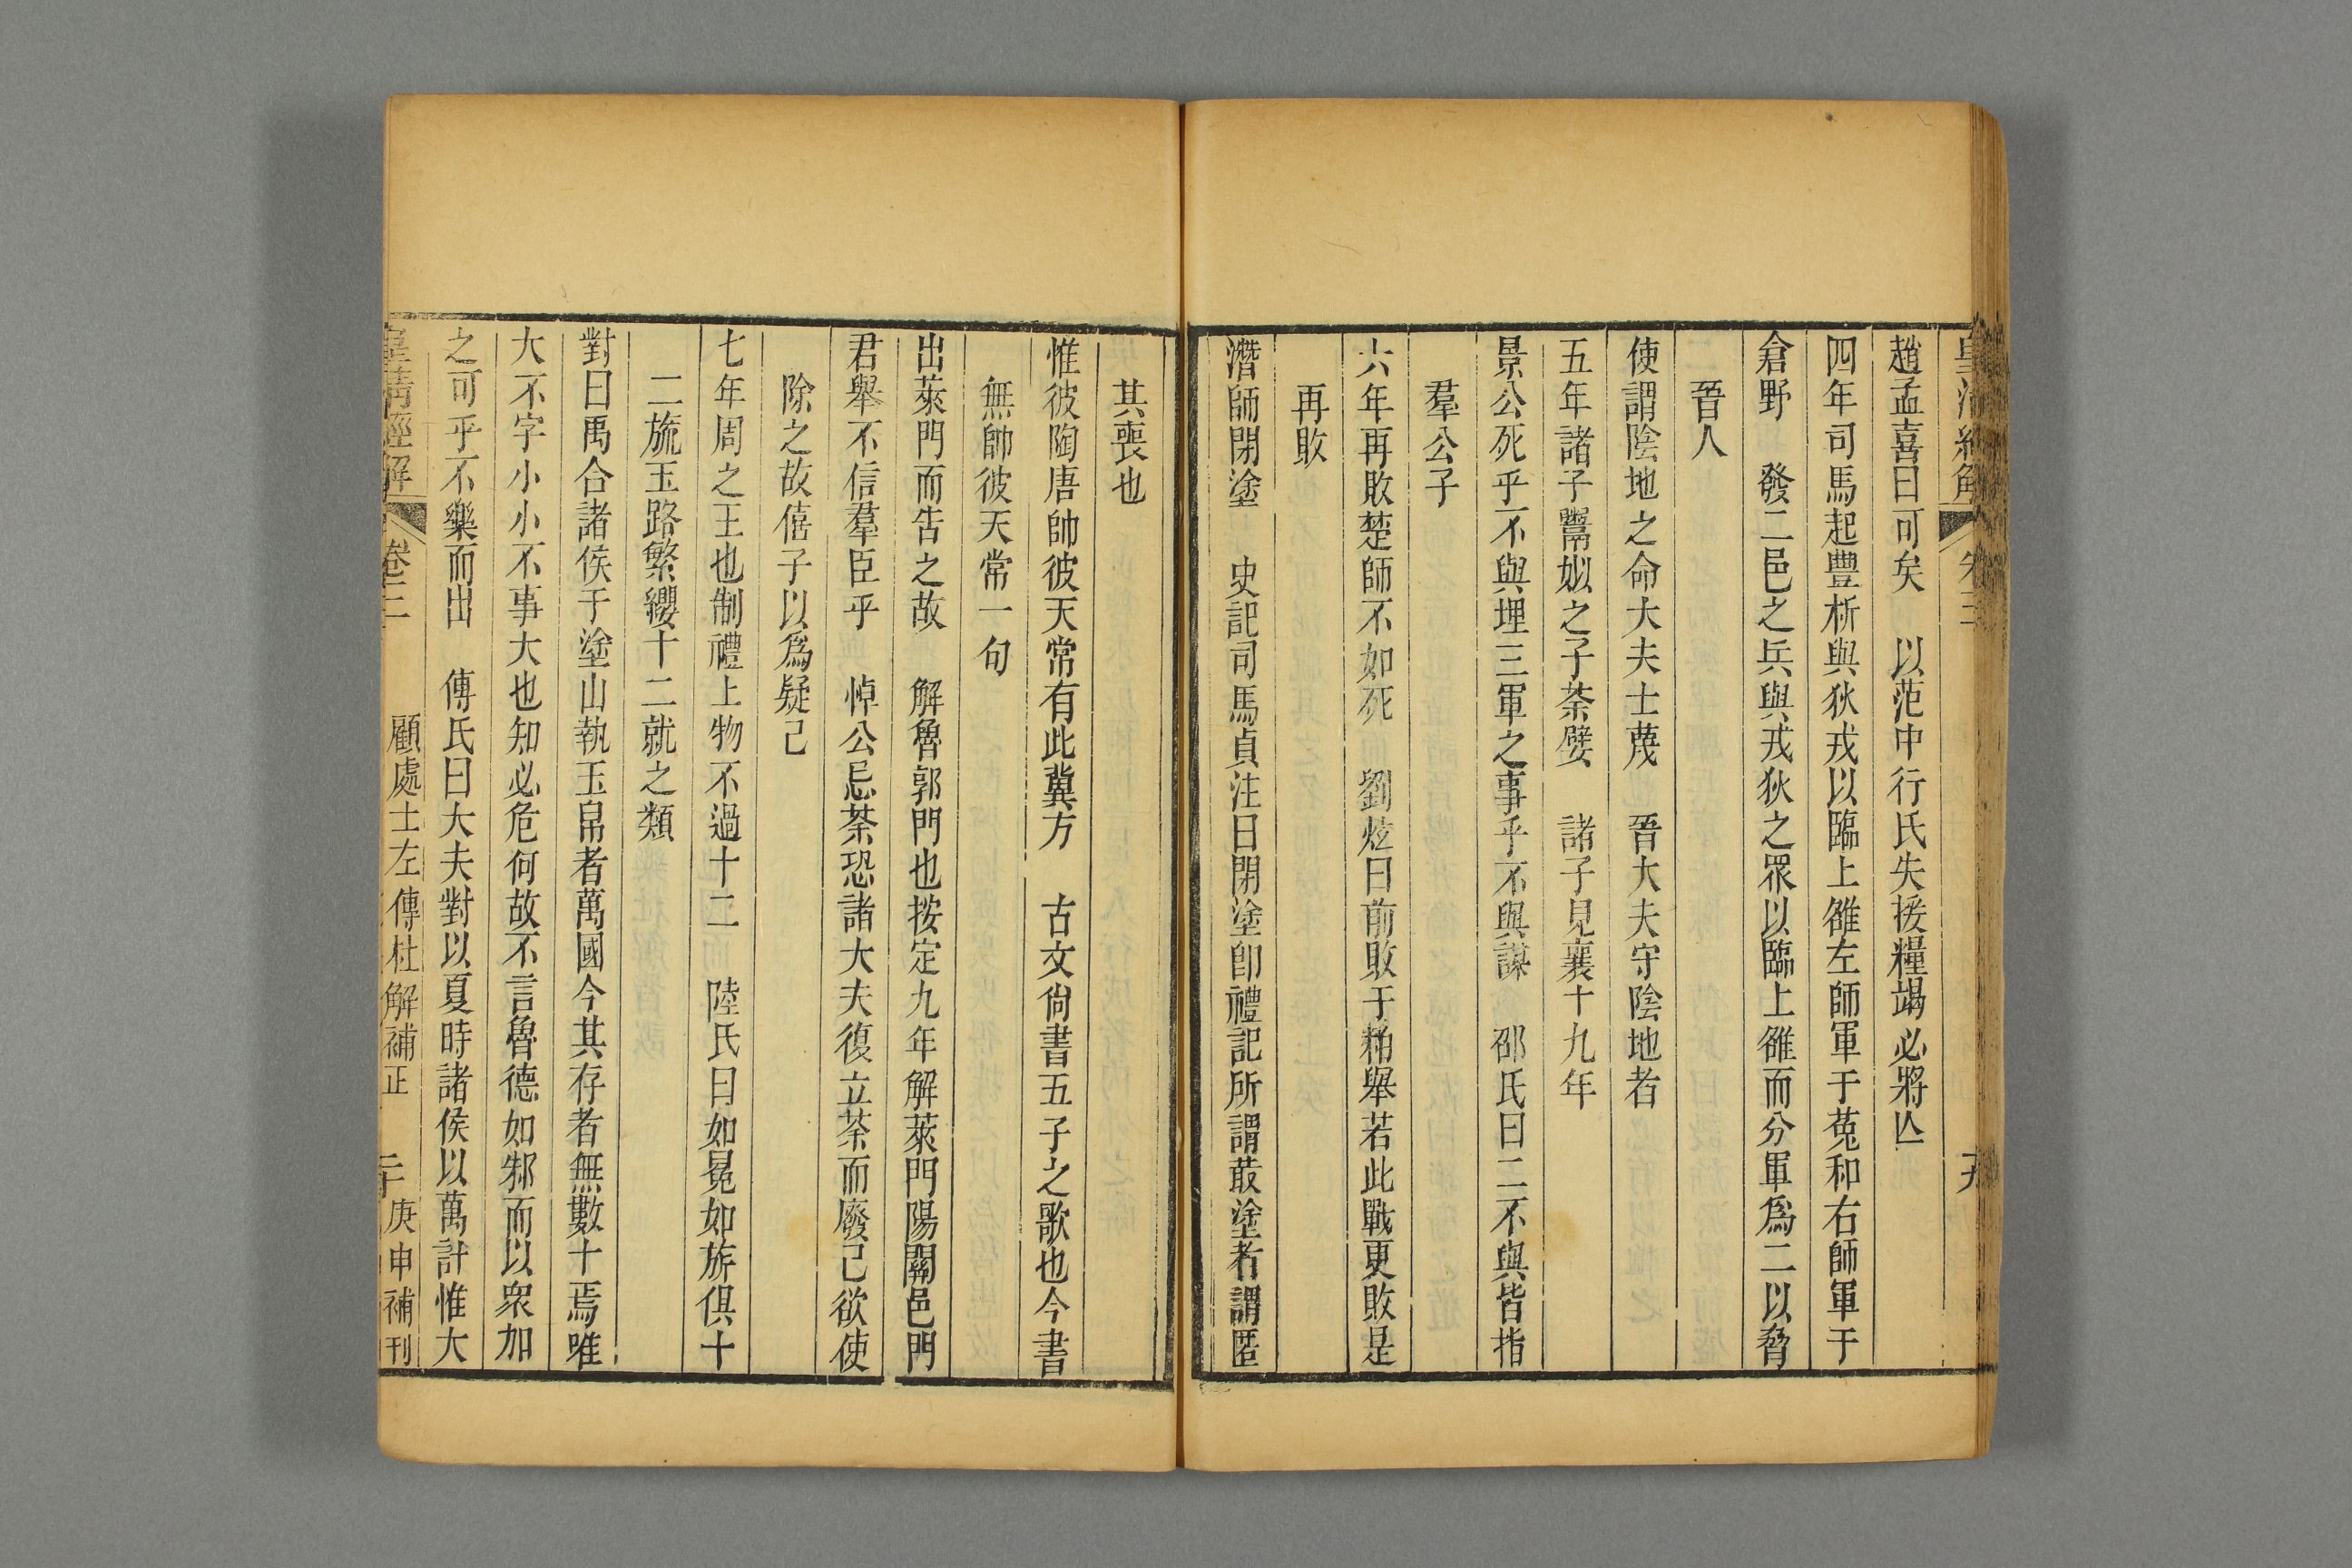 皇清經解 卷三
趙孟喜曰可矣　以范中行氏失援糧竭必將亾
四年司馬起豐析與狄戎以臨上雒左師軍于菟和右師軍于
倉野　發二邑之兵與戎狄之眾以臨上雒而分軍爲二以脅
晉人
使謂陰地之命大夫士蔑　晉大夫守陰地者
五年諸子鬻姒之子荼嬖　諸子見襄十九年
景公死乎不與埋三軍之事乎不與謀　邵氏曰二不與皆指
羣公子
六年再敗楚師不如死　劉炫曰前敗于柏舉若此戰更敗是
再敗
潛師閉塗　史記司馬貞注曰閉塗卽禮記所謂菆塗者謂匿
其喪也
惟彼陶唐帥彼天常有此冀方　古文尙書五子之歌也今書
無帥彼天常一句
出萊門而告之故　解魯郭門也按定九年解萊門陽關邑門
君舉不信羣臣乎　悼公忌荼恐諸大夫復立荼而廢己欲使
除之故僖子以爲疑己
七年周之王也制禮上物不過十二　陸氏曰如冕如旂俱十
二旒玉路繁纓十二就之類
對曰禹合諸侯于塗山執玉帛者萬國今其存者無數十焉唯
大不字小小不事大也知必危何故不言魯德如邾而以衆加
之可乎不樂而出　傳氏曰大夫對以夏時諸侯以萬計惟大
皇清經解 卷三 顧處士左傳杜解補正 二十 庚申補刊